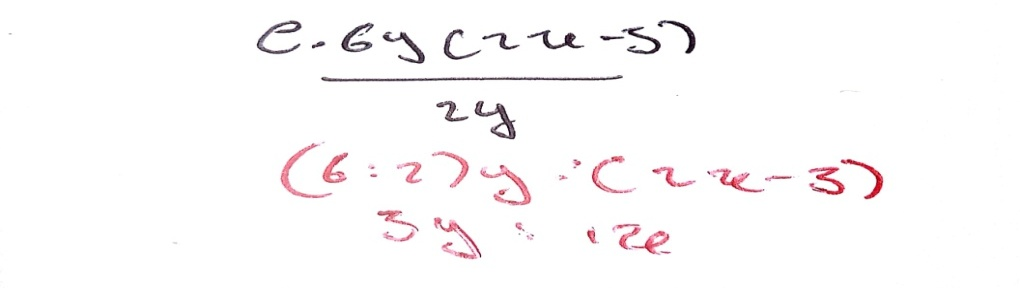 e. 6y (2x-3)
2y
(6:2)y : (2x-3)
3y : 12x